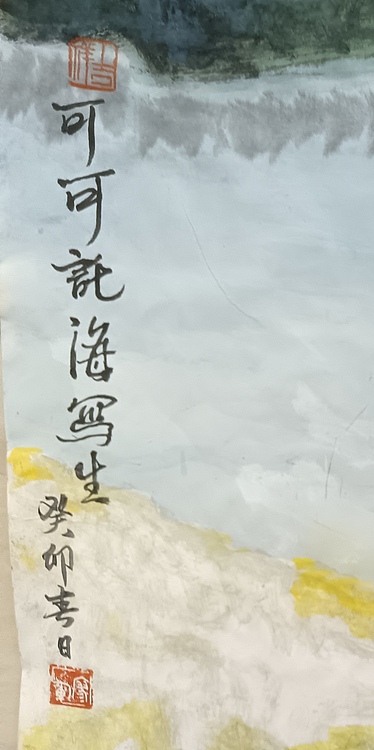 吉祥
可可託海寫生
癸卯春日